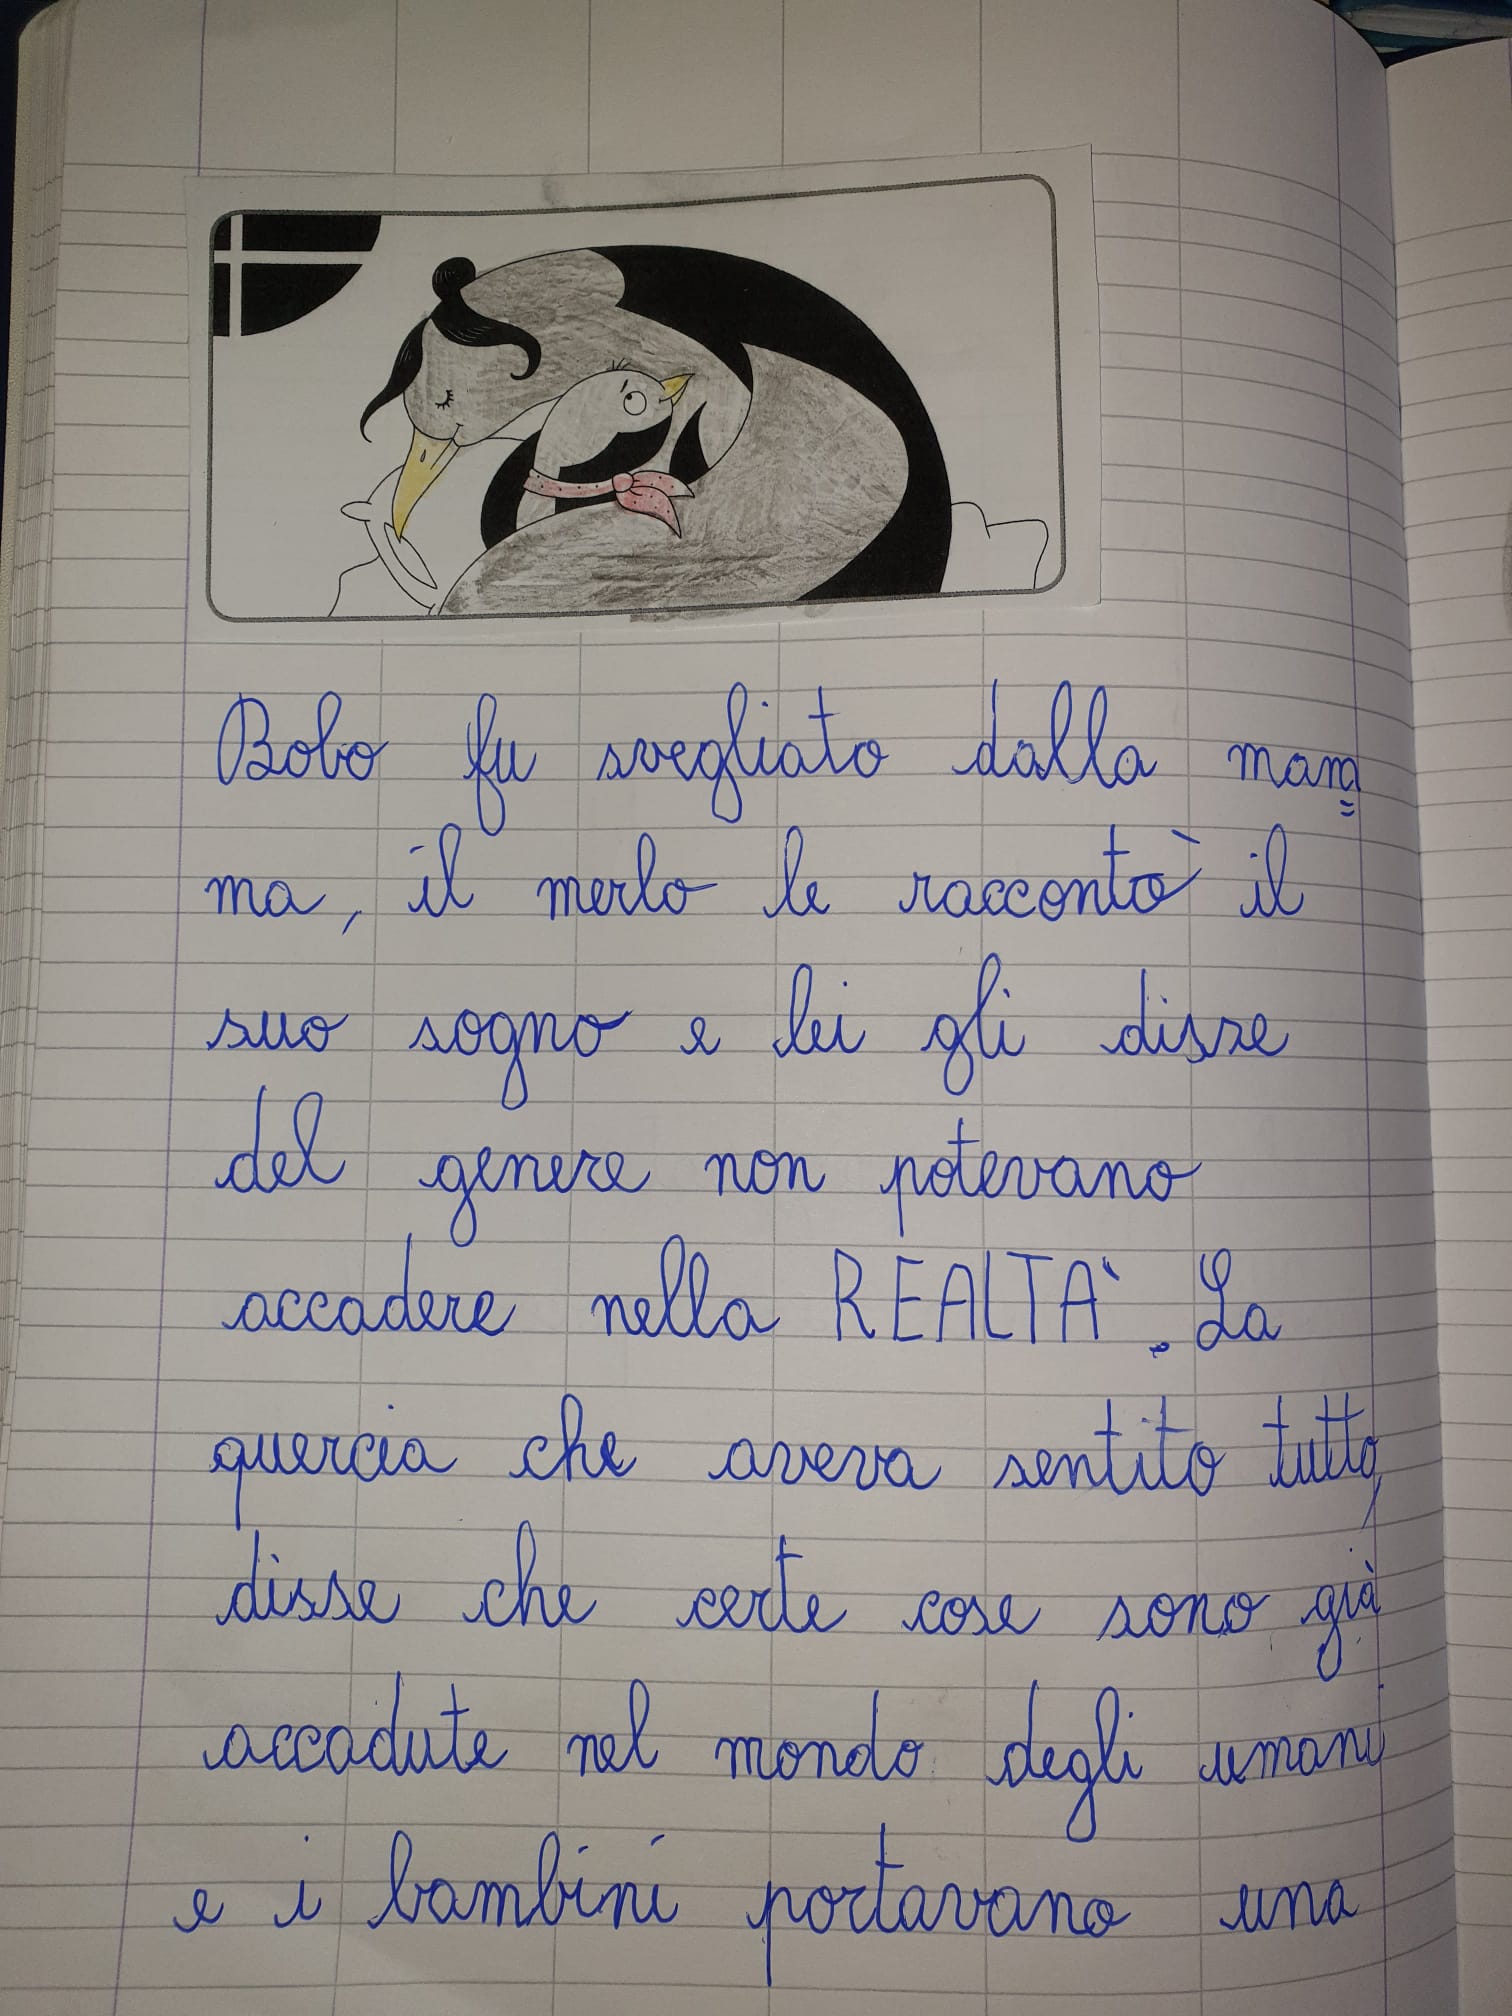 Bobo fu svegliato dalla mam=
ma, il merlo le raccontò il
suo sogno e lei gli disse
del genere non potevano
accadere nella REALTÀ. La
quercia che aveva sentito tutto,
disse che certe cose sono già
accadute nel mondo degli umani
e i bambini portavano una